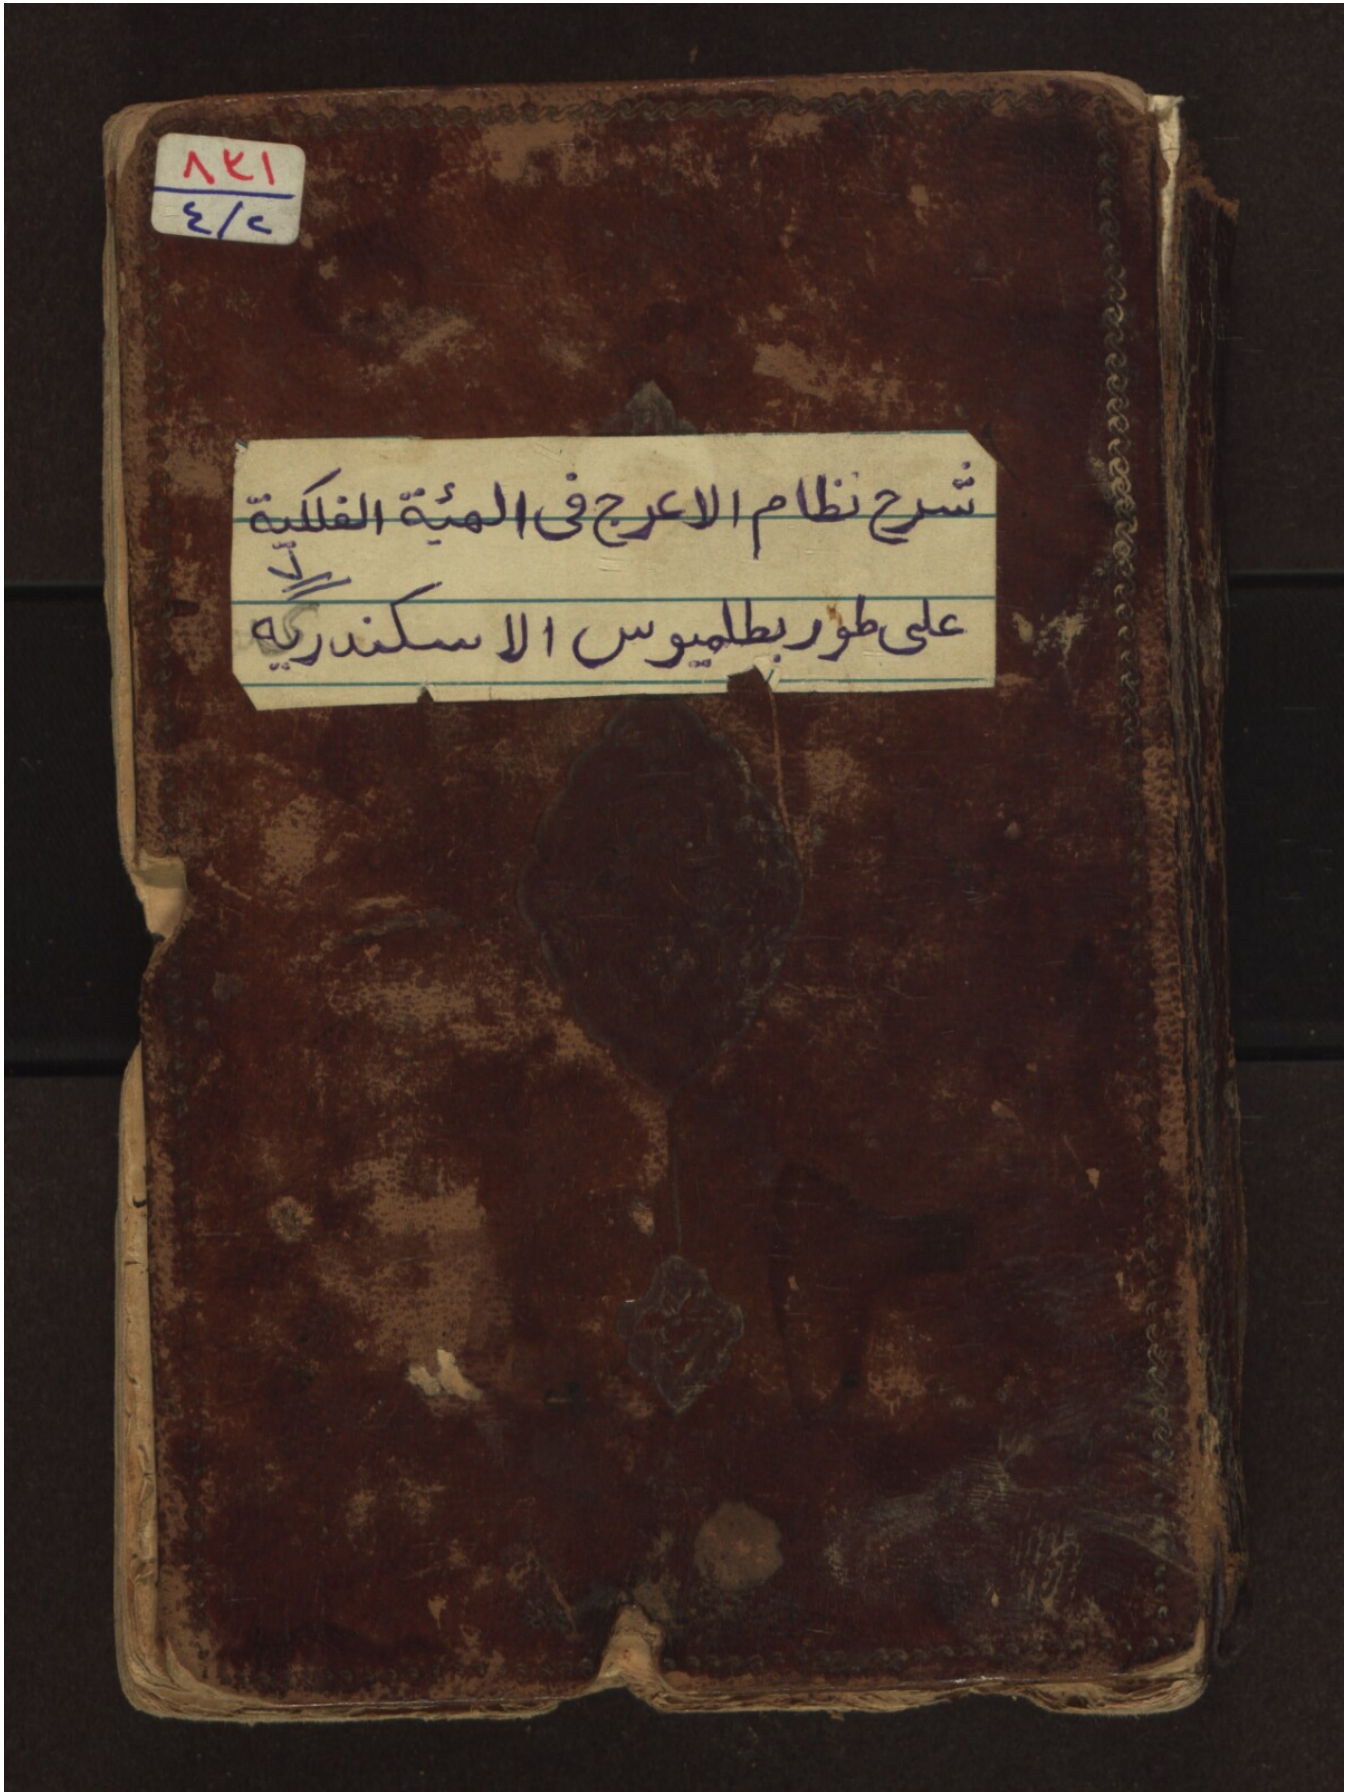 ٨٢١
٤/٢
شرح نظام الاعرج فى الهيئة الفلكية
على طور بطلميوس الاسكندريه